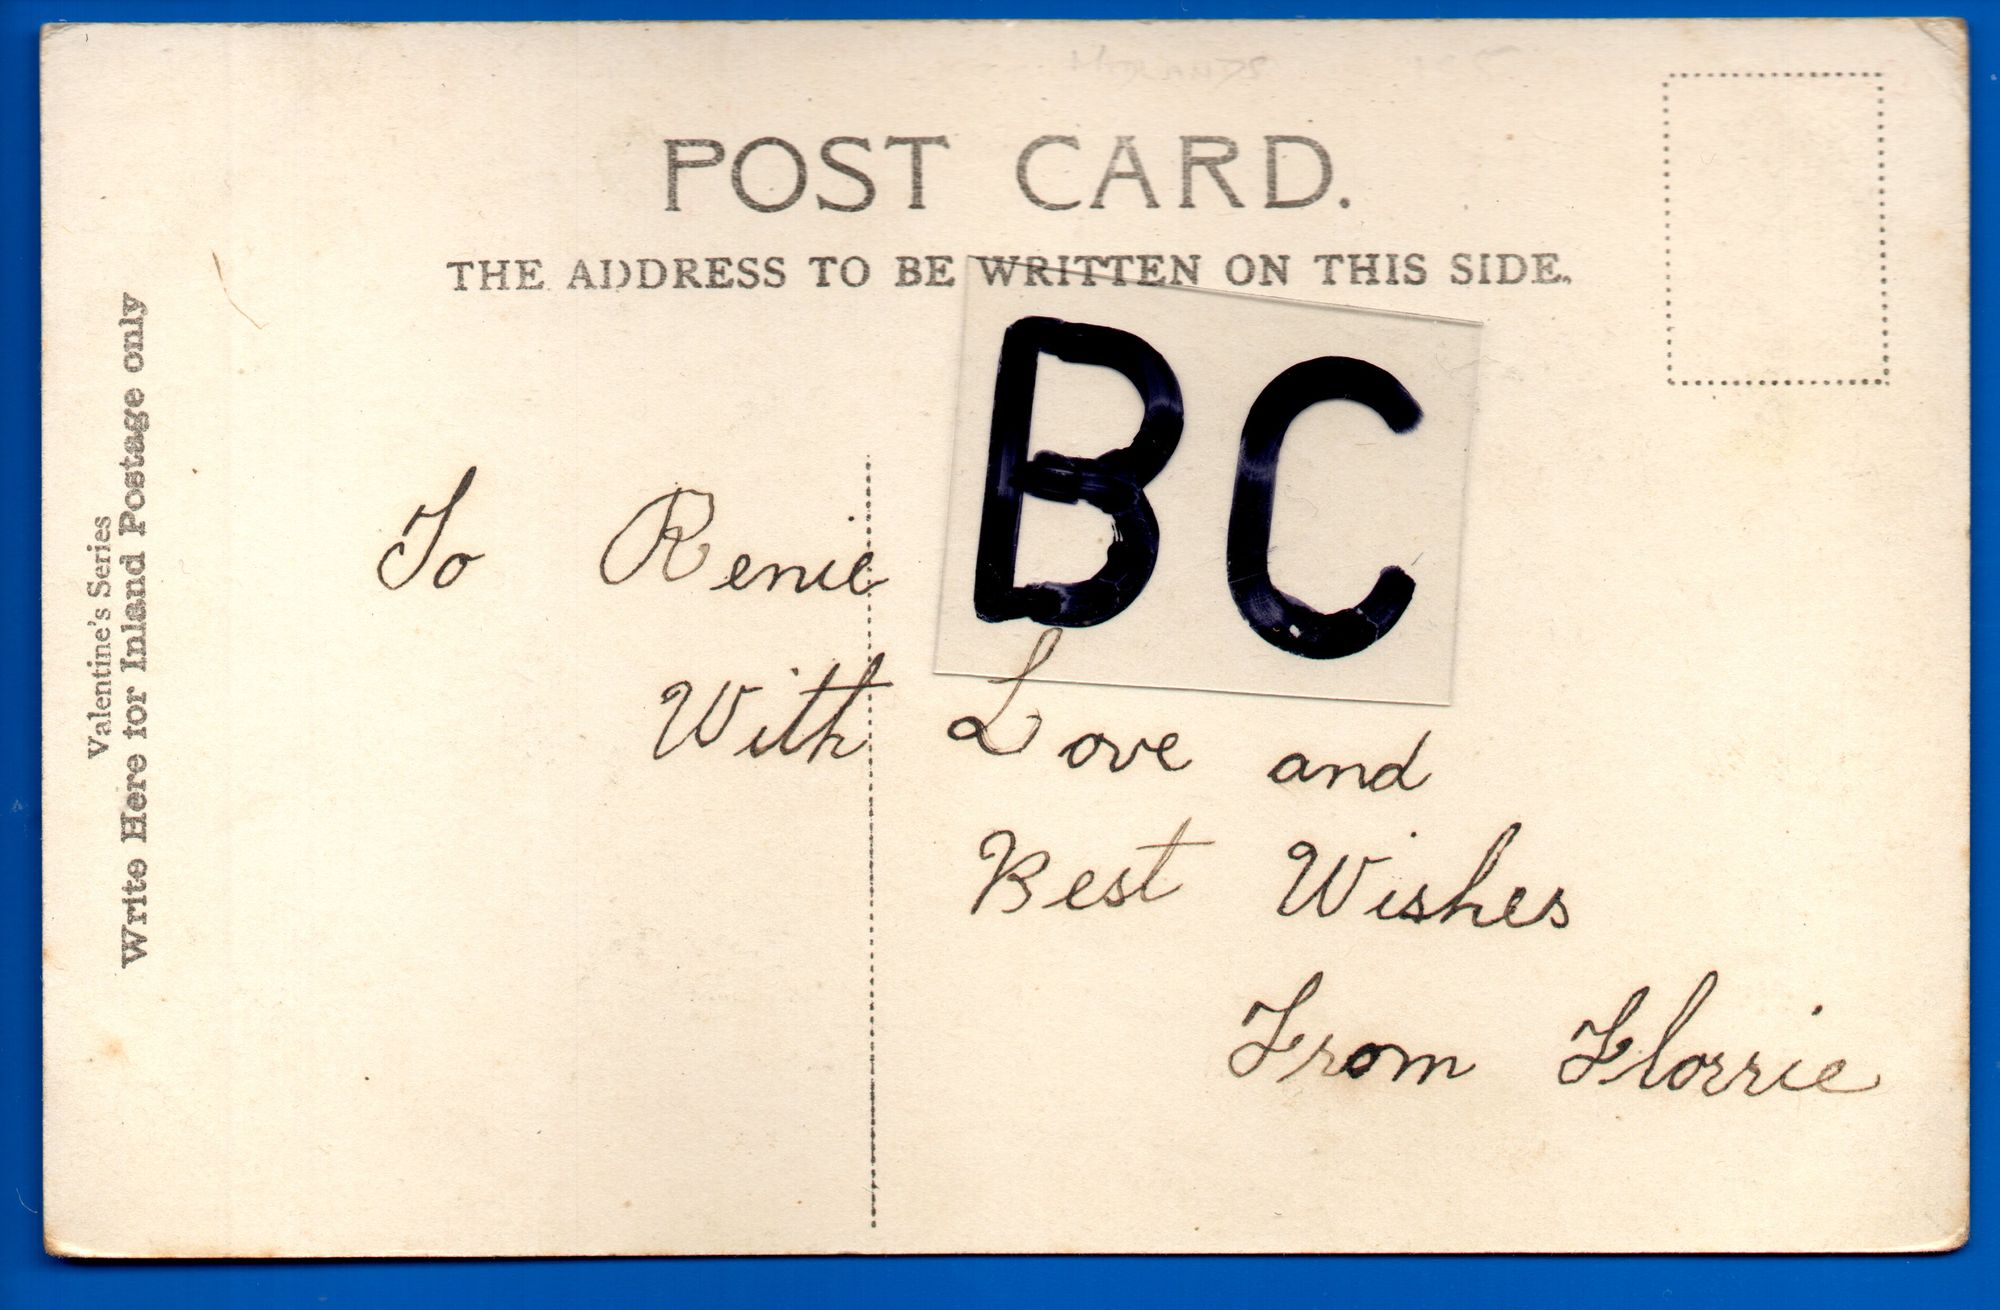 MIDLANDS
POST CARD.
THE ADDRESS TO BE WRITTEN ON THIS SIDE.
Valentine's Series
Write Here for Inland Postage only
BC
To Renie
With Love and
Best Wishes
From Florrie